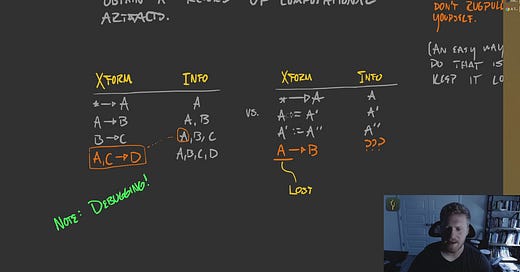 OBTAIN A RECORD OF COMPUTATIONAL
ARTIFACTS.
DON'T RUGPULL
YOURSELF.
(AN EASY WAY
DO THAT IS
KEEP IT LO
XFORM INFO
* → A A
A → B A, B
B → C A, B, C
A, C → D A, B, C, D
VS.
XFORM INFO
* → A A
A := A' A'
A' := A'' A''
A → B ???
LOST
NOTE: DEBUGGING!